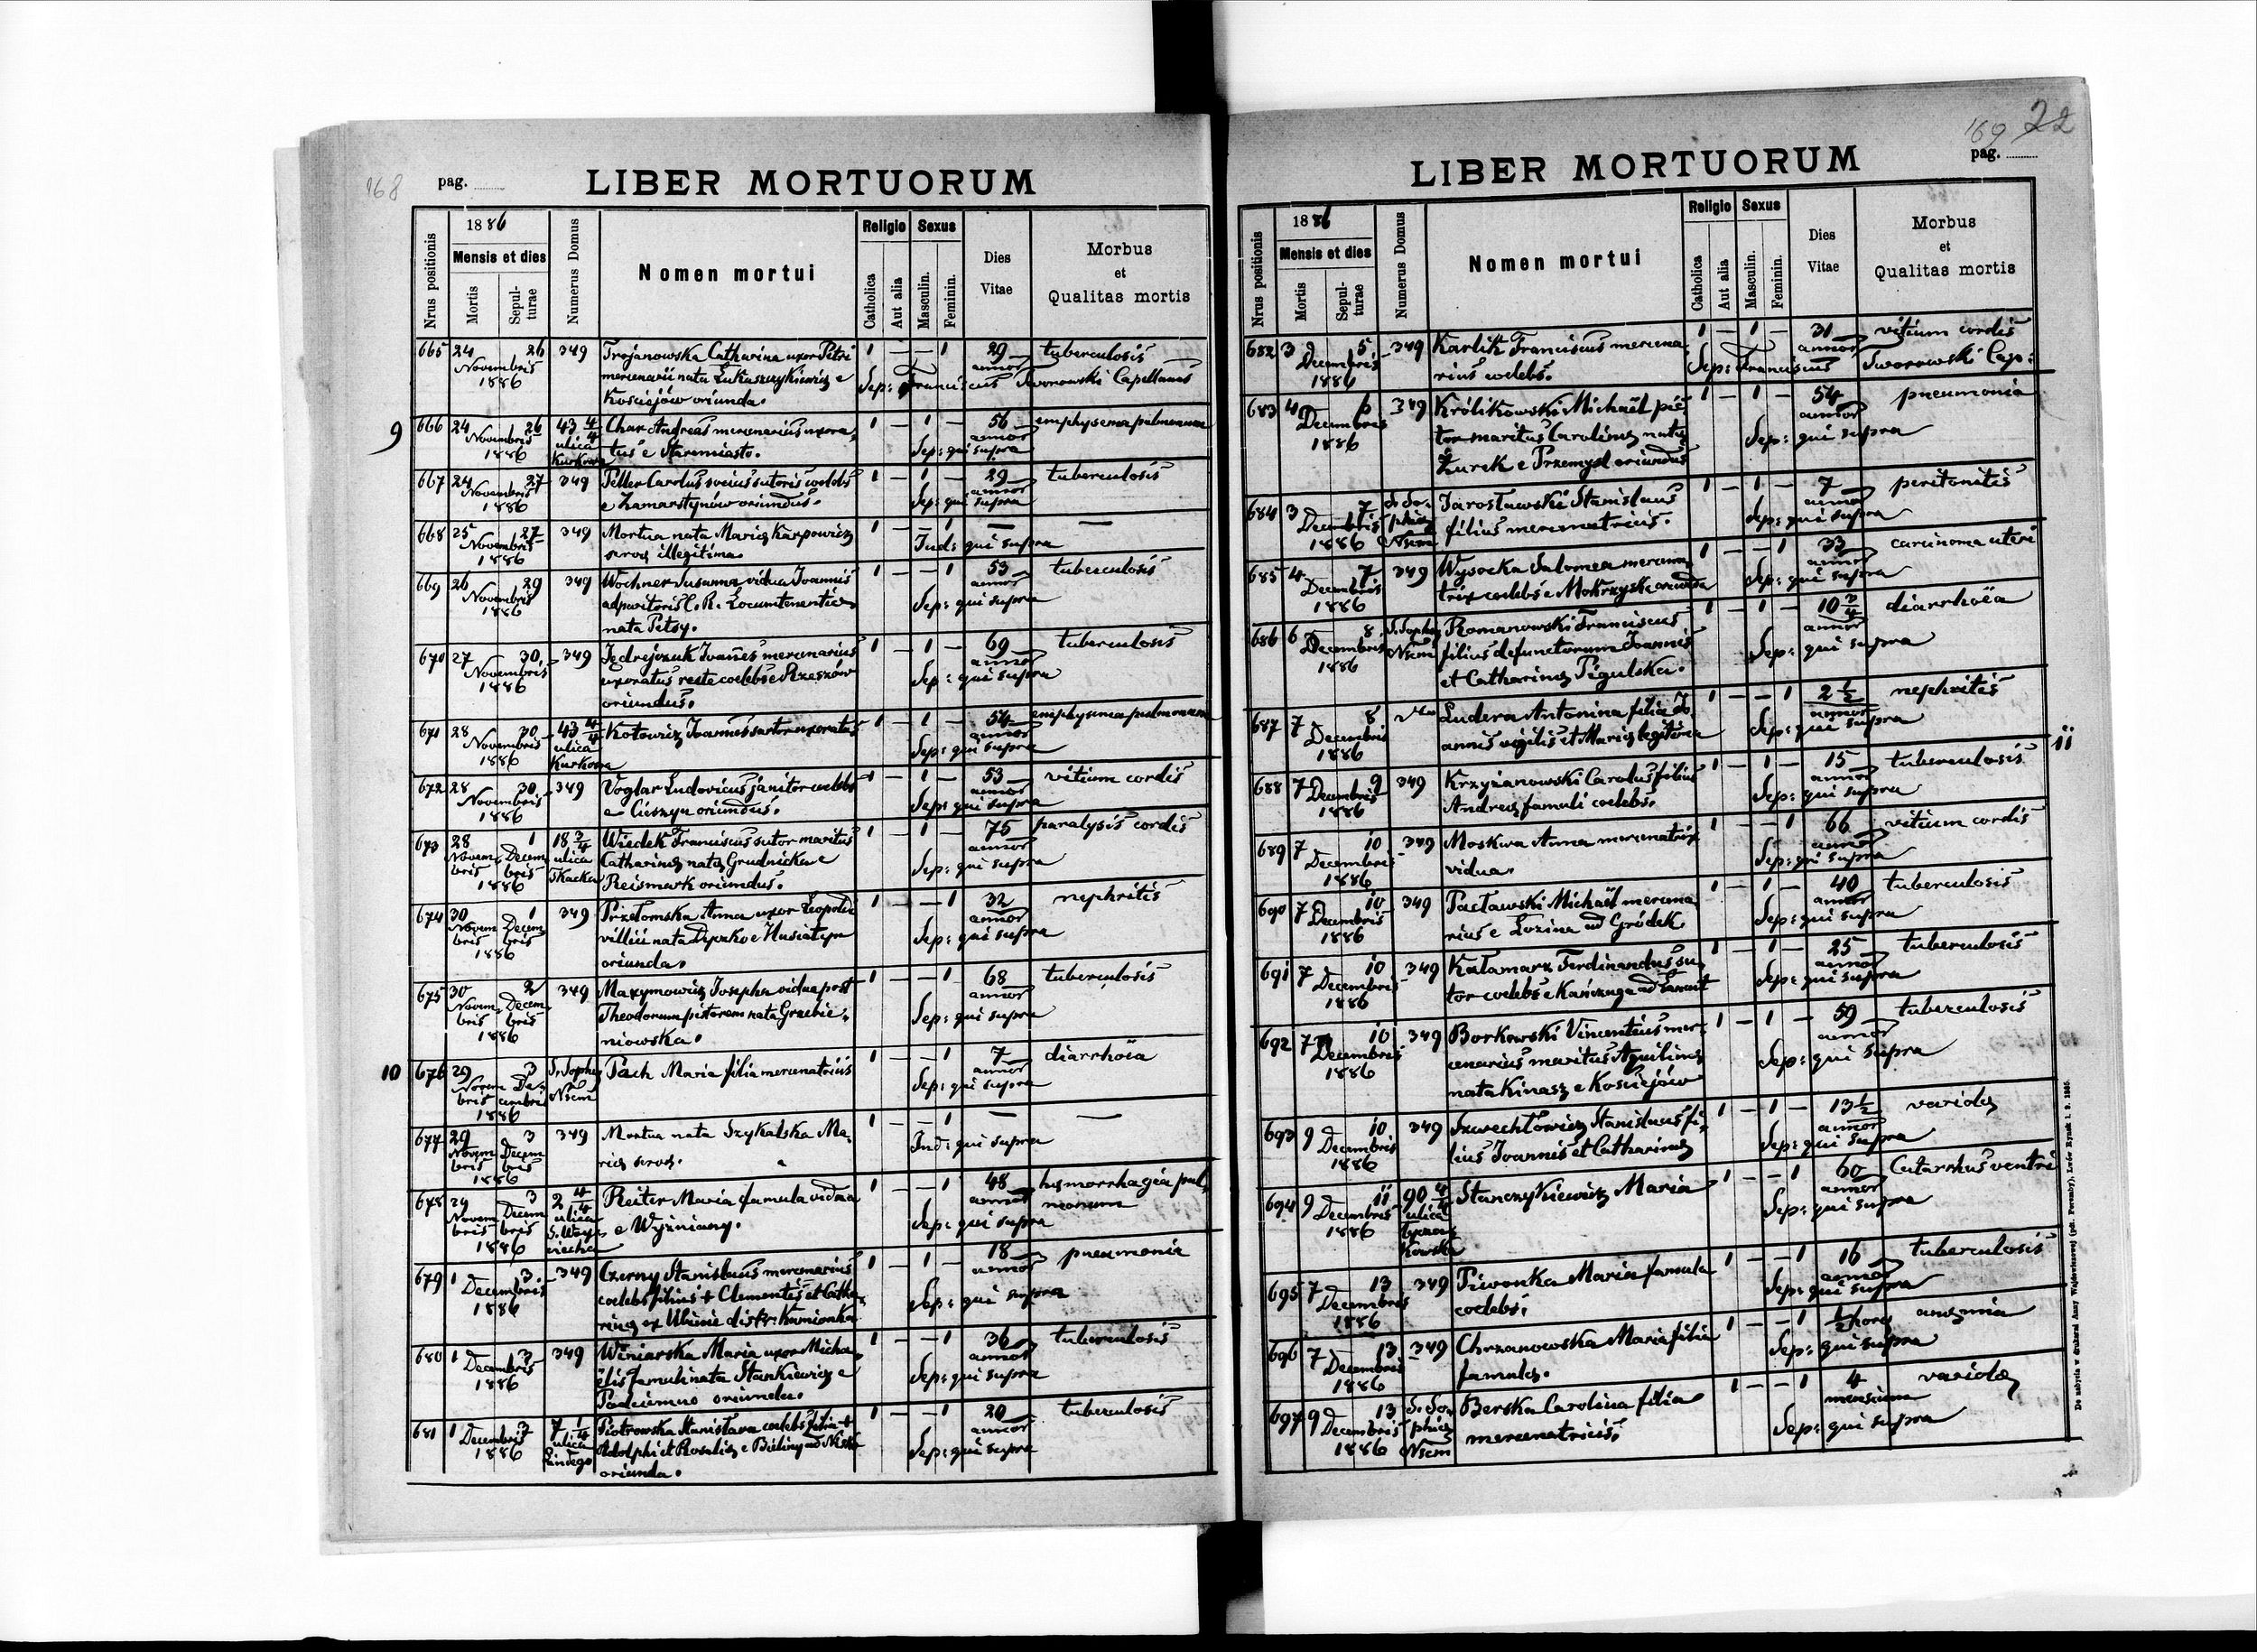 168
pag.
LIBER MORTUORUM
Nrus positionis
1886
Mensis et dies
Mortis
Sepulturae
Numerus Domus
Nomen mortui
Religio
Catholica
Aut alia
Sexus
Masculin.
Feminin.
Dies Vitae
Morbus
et
Qualitas mortis
665 24 26 349 Trojanowska Catharina uxor Petri 1 — — 1 29 tuberculosis
Novembris mercenarii nata Łukaszczykiewicz e annor
1886 Kościejów oriunda. Sep: Franciscus Tworowski Capellanus
9
666 24 26 43 4/4 Char Andreas mercenarius uxora- 1 — 1 — 56 emphysema pulmonum
Novembris ulica tus e Staremiasto. annor
1886 Kurkowa Sep: qui supra
667 24 27 349 Peller Carolus socius sutoris coelebs 1 — 1 — 29 tuberculosis
Novembris e Zamarstynów oriundus. annor
1886 Sep: qui supra
668 25 27 349 Mortua nata Mariæ Karpowicz 1 — — 1 — —
Novembris servæ illegitima.
1886 Ind: qui supra
669 26 29 349 Wochner Susanna vidua Joannis 1 — — 1 53 tuberculosis
Novembris C. R. Locumtenentiæ annor
1886 nata Petsy. Sep: qui supra
670 27 30 349 Jędrejczuk Joañes mercenarius 1 — 1 — 69 tuberculosis
Novembris uxoratus recte coelebs e Rzeszów annor
1886 oriundus. Sep: qui supra
671 28 30 43 4/4 Kotowicz Joannes sartor uxoratus 1 — 1 — 54 emphysema pulmonum
Novembris ulica annor
1886 Kurkowa Sep: qui supra
672 28 30 349 Voglar Ludovicus janitor coelebs 1 — 1 — 53 vitium cordis
Novembris e Cieszyn oriundus. annor
1886 Sep: qui supra
673 28 1 18 3/4 Wiedek Franciscus sutor maritus 1 — 1 — 75 paralysis cordis
Novembris Decembris ulica Catharinæ natæ Grudnicka e annor
1886 Tkacka Reismark oriundus. Sep: qui supra
674 30 1 349 Przełomska Anna uxor Leopoldi 1 — — 1 32 nephritis
Novembris Decembris villici nata Dyczko e Husiatyn annor
1886 oriunda. Sep: qui supra
675 30 2 349 Maxymowicz Josepha vidua post 1 — — 1 68 tuberculosis
Novembris Decembris Theodorum pistorem nata Grzebie- annor
1886 niowska. Sep: qui supra
10
676 29 3 S. Sophiæ Pach Maria filia mercenatricis 1 — — 1 7 diarrhoïa
Novembris Decembris Nsem annor
1886 Sep: qui supra
677 29 3 349 Mortua nata Szykalska Ma- 1 — — 1 — —
Novembris Decembris riæ servæ.
1886 Ind: qui supra
678 29 3 2 4/4 Reiter Maria famula vidua 1 — — 1 48 hæmorrhagia pul-
Novembris Decembris ulica e Wyżniany. annor monum
1886 S. Wojciecha Sep: qui supra
679 1 3 349 Czerny Stanislaus mercenarius 1 — 1 — 18 pneumonia
Decembris coelebs filius + Clementis et Catha- annor
1886 rinæ ex distr: Kamionka Sep: qui supra
680 1 3 349 Winiarska Maria uxor Micha- 1 — — 1 36 tuberculosis
Decembris ëlis famuli nata Stankiewicz e annor
1886 oriunda. Sep: qui supra
681 1 3 7 1/4 Piotrowska Stanislava coelebs filia + 1 — — 1 20 tuberculosis
Decembris ulica Adolphi et Rosaliæ e Bieliny ad Nisko annor
1886 Lindego oriunda. Sep: qui supra
169 22
pag.
LIBER MORTUORUM
Nrus positionis
1886
Mensis et dies
Mortis
Sepulturae
Numerus Domus
Nomen mortui
Religio
Catholica
Aut alia
Sexus
Masculin.
Feminin.
Dies
Vitae
Morbus
et
Qualitas mortis
682 3 5 349 Karlik Franciscus mercena- 1 — 1 — 31 vitium cordis
Decembris rius coelebs. annor
1886 Sep: Franciscus Tworowski Cap:
683 4 6 349 Królikowski Michaël pis- 1 — 1 — 54 pneumonia
Decembris tor maritus Carolinæ natæ annor
1886 Żurek e Przemysl oriundus Sep: qui supra
684 3 7 S. So- Jarosławski Stanislaus 1 — 1 — 7 peritonitis
Decembris phiæ filius mercenatricis. annor
1886 Nsem Sep: qui supra
685 4 7 349 Wysocka Salomea mercena- 1 — — 1 33 carcinoma uteri
Decembris trix coelebs e Mokrzysk oriunda annor
1886 Sep: qui supra
686 6 8 S. Sophiæ Romanowski Franciscus 1 — 1 — 10 3/4 diarrhoïa
Decembris Nsem filius defunctorum Joannis annor
1886 et Catharinæ Pigulska. Sep: qui supra
687 7 8 Ludera Antonina filia Jo- 1 — — 1 2 1/2 nephritis
Decembris annis vigilis et Mariæ legitima annor
1886 Sep: qui supra
11
688 7 9 349 Krzyżanowski Carolus filius 1 — 1 — 15 tuberculosis
Decembris Andreæ famuli coelebs. annor
1886 Sep: qui supra
689 7 10 349 Moskwa Anna mercenatrix 1 — — 1 66 vitium cordis
Decembris vidua. annor
1886 Sep: qui supra
690 7 10 349 Pacławski Michaël mercena- 1 — 1 — 40 tuberculosis
Decembris rius e Łozina ad Gródek annor
1886 Sep: qui supra
691 7 10 349 Kałamarz Ferdinandus su- 1 — 1 — 25 tuberculosis
Decembris tor coelebs e Kańczuga ad Łańcut annor
1886 Sep: qui supra
692 7 10 349 Borkowski Vincentius mer- 1 — 1 — 59 tuberculosis
Decembris cenarius maritus Aquilinæ annor
1886 nata Kinasz e Kościejów Sep: qui supra
693 9 10 349 Szwechłowicz Stanislaus fi- 1 — 1 — 13 1/2 variolæ
Decembris lius Joannis et Catharinæ annor
1886 Sep: qui supra
694 9 11 90 4/4 Stanczykiewicz Maria 1 — — 1 60 Catarrhus ventri
Decembris ulica annor
1886 Łyczakowska Sep: qui supra
695 7 13 349 Piwonka Maria famula 1 — — 1 16 tuberculosis
Decembris coelebs. annor
1886 Sep: qui supra
696 7 13 349 Chrzanowska Maria filia 1 — — 1 1/2 horæ anæmia
Decembris famulæ.
1886 Sep: qui supra
697 9 13 S. So- Berska Carolina filia 1 — — 1 4 variolæ
Decembris phiæ mercenatricis. mensium
1886 Nsem Sep: qui supra
De nabycia w drukarni Anny Wajdowiczowej (pdt. Poremby), Lwów Rynek l. 9. 1885.